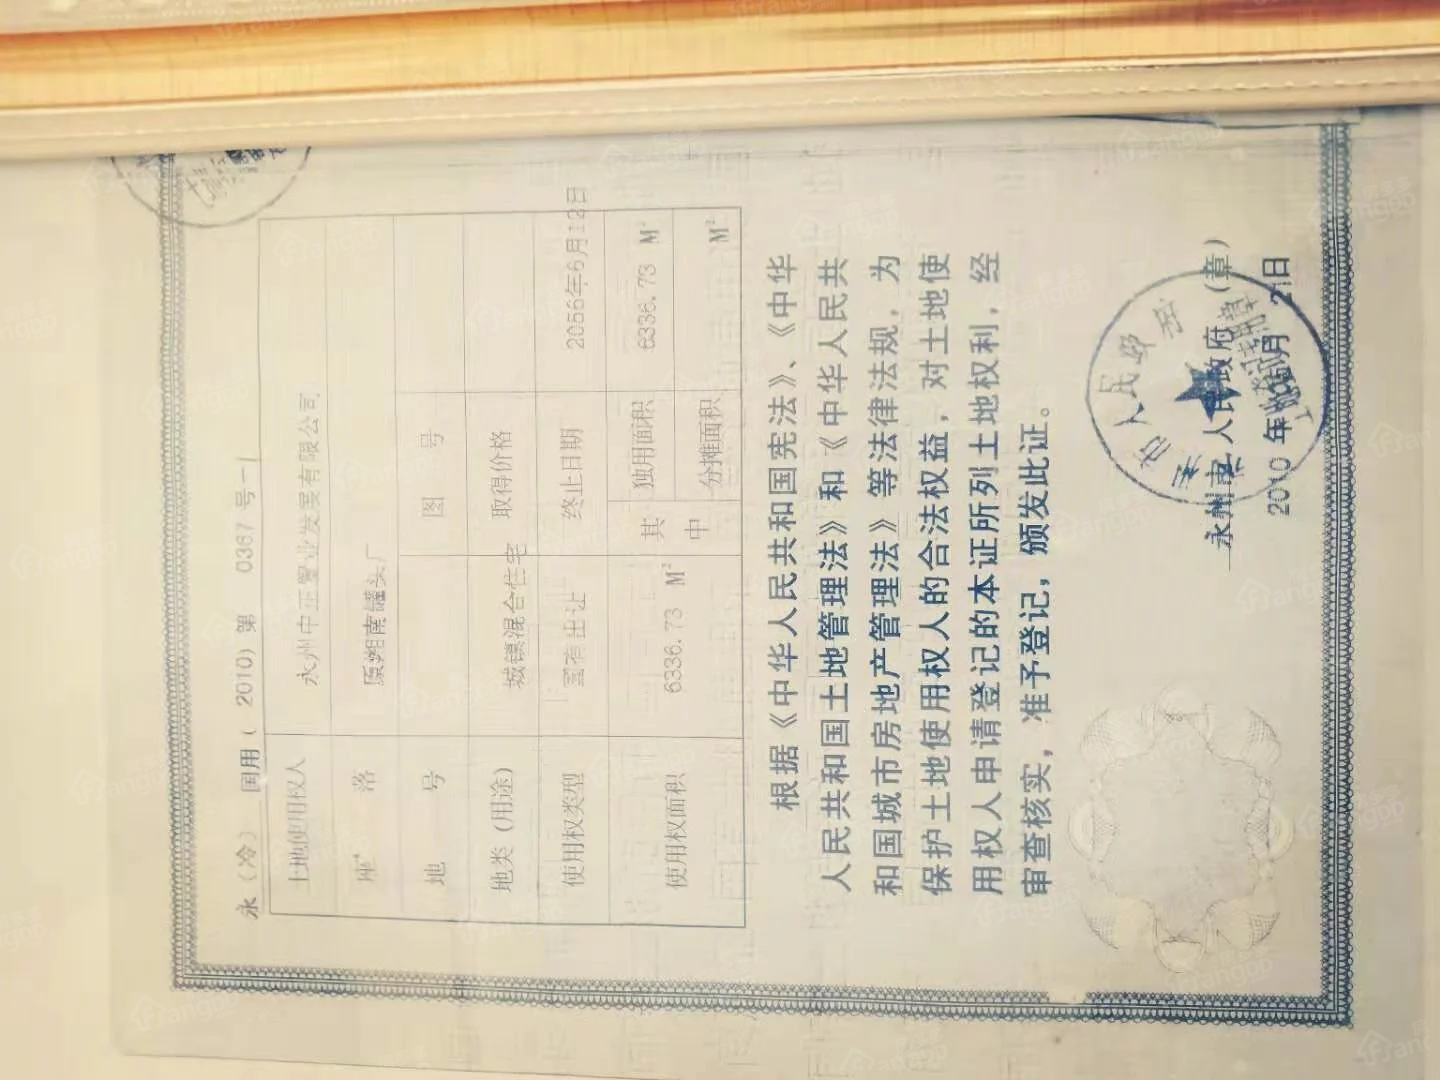 永（冷） 国用（ 2010）第 0367 号-1
土地使用权人 永州中正置业发展有限公司
座 落 原湘南罐头厂
地 号 图 号
地类（用途） 城镇混合住宅 取得价格
使用权类型 国有出让 终止日期 2056年6月12日
使用权面积 6336.73 M² 其中 独用面积 6336.73 M²
分摊面积 M²
根据《中华人民共和国宪法》、《中华
人民共和国土地管理法》和《中华人民共
和国城市房地产管理法》等法律法规，为
保护土地使用权人的合法权益，对土地使
用权人申请登记的本证所列土地权利，经
审查核实，准予登记，颁发此证。
永州市 人民政府（章）
2010 年 月 21日